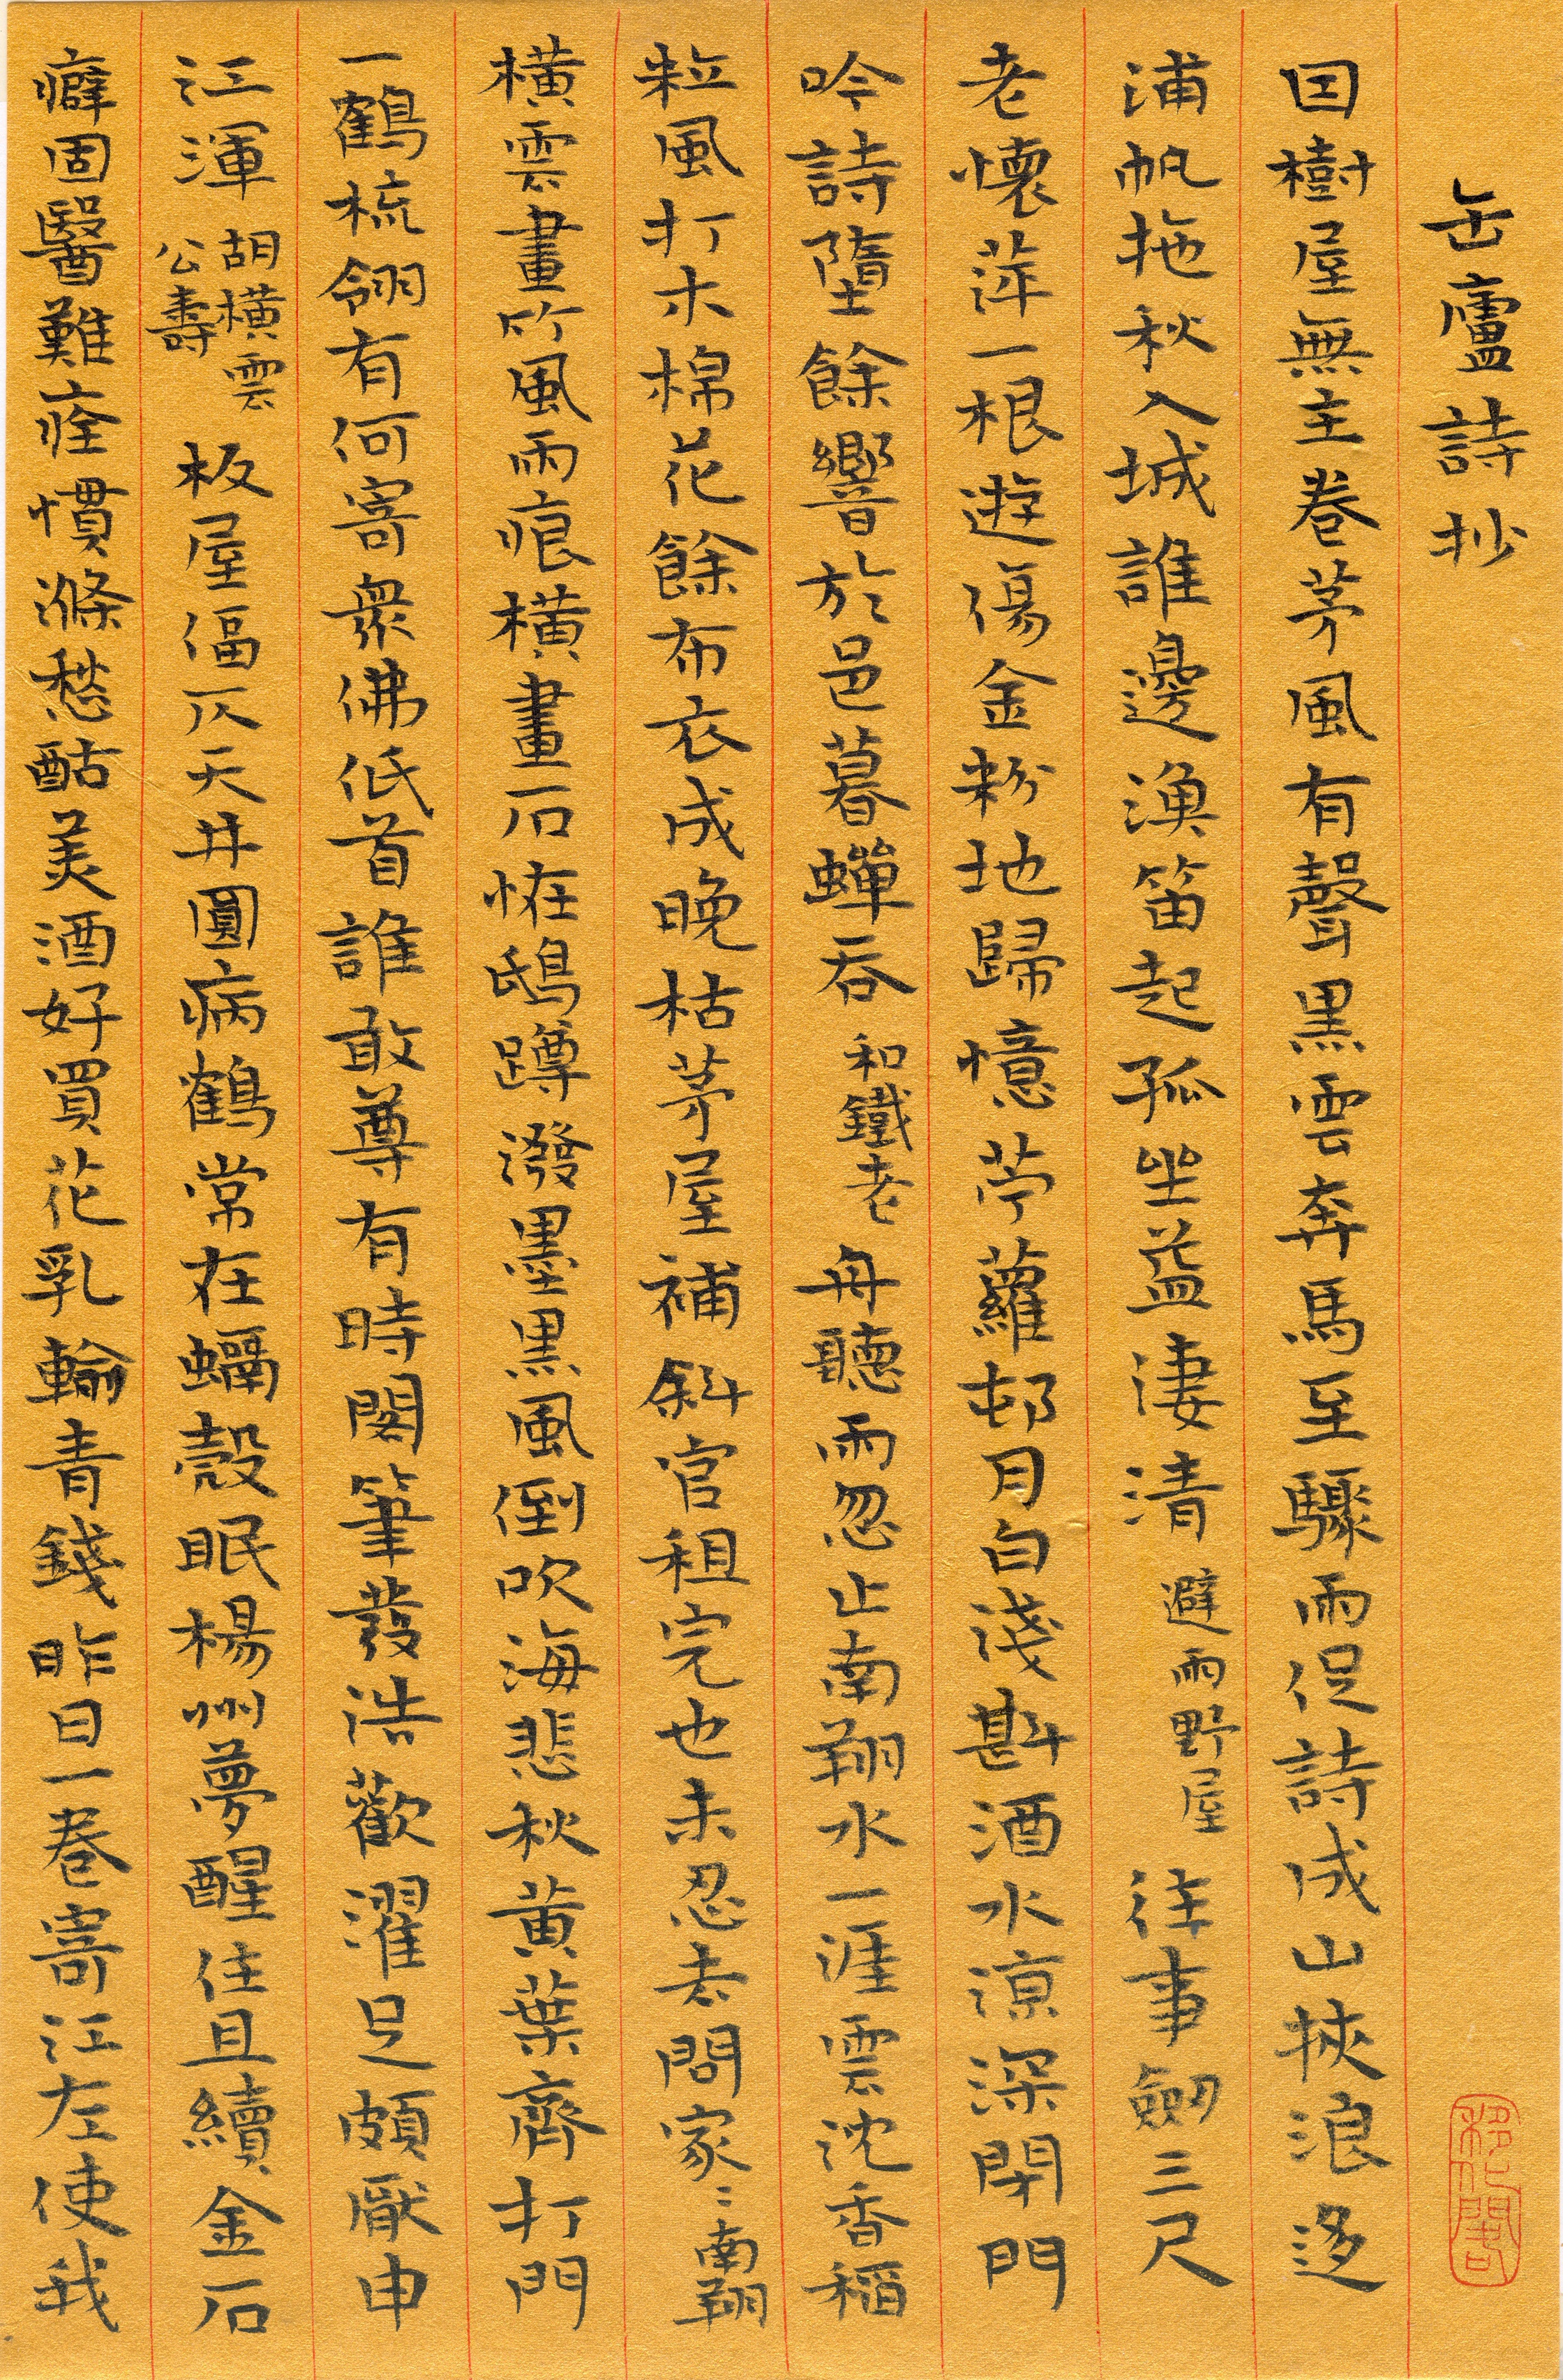 缶廬詩抄
因樹屋無主卷茅風有聲黑雲奔馬至驟雨促詩成山挾浪逐
浦帆拖秋入城誰邊漁笛起孤坐益淒清避雨野屋往事劍三尺
老懷萍一根遊傷金粉地歸憶苧蘿邨月白淺斟酒水涼深閉門
吟詩墮餘響於邑暮蟬吞和鐵老舟聽雨忽止南翔水一涯雲沈香稻
粒風打木棉花餘布衣成晚枯茅屋補斜官租完也未忍去問家〻南翔
橫雲畫竹風雨痕橫畫石恠鴟蹲潑墨黑風倒吹海悲秋黃葉齊打門
一鶴梳翎有何寄衆佛低首誰敢尊有時閣筆發浩歡濯足頗厭申
江渾胡橫雲公壽板屋偪仄天井圓病鶴常在蝸殼眠楊州夢醒住且續金石
癖固醫難痊慣滌愁酤美酒好買花乳輸青錢昨日一卷寄江左使我